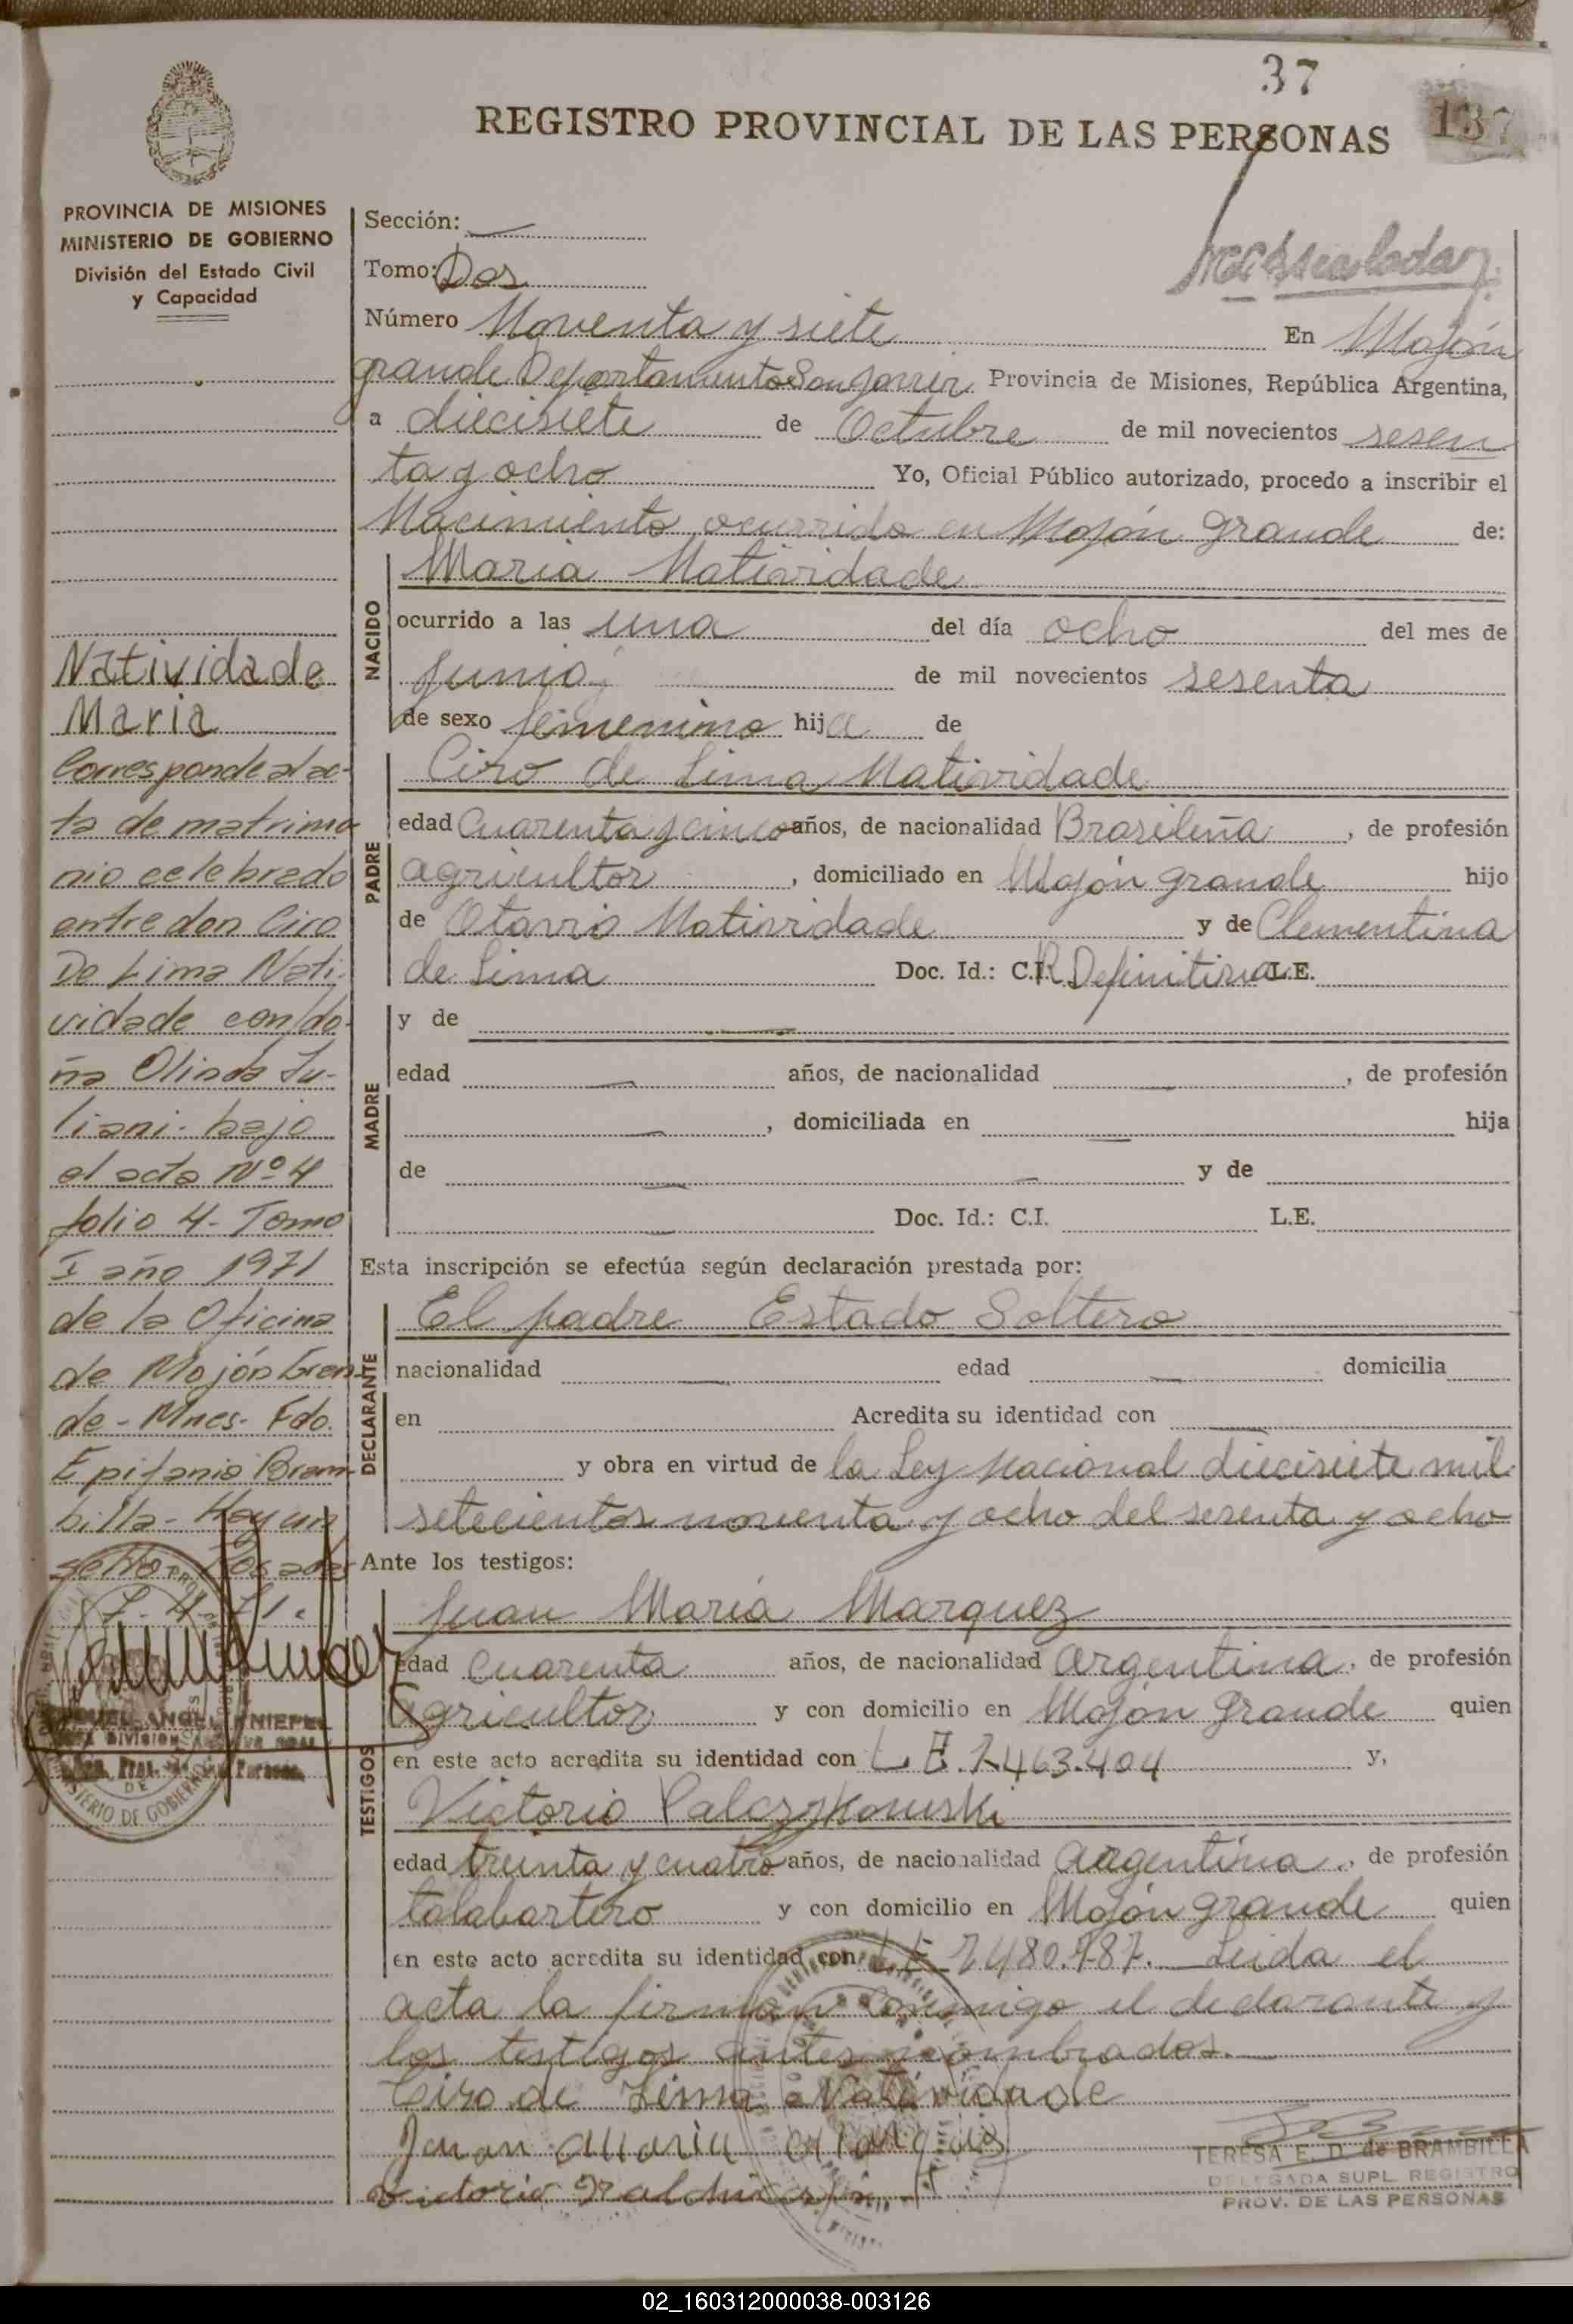 37
137
REGISTRO PROVINCIAL DE LAS PERSONAS
PROVINCIA DE MISIONES
MINISTERIO DE GOBIERNO
División del Estado Civil
y Capacidad
Sección:
Tomo: Dos
Número Noventa y siete En Mojón
grande Departamento San Javier Provincia de Misiones, República Argentina,
a diecisiete de Octubre de mil novecientos sesen
ta y ocho Yo, Oficial Público autorizado, procedo a inscribir el
Nacimiento ocurrido en Mojón grande de:
NACIDO
Maria Natividade
ocurrido a las una del día ocho del mes de
Junio de mil novecientos sesenta
de sexo femenino hija de
PADRE
Ciro de Lima Natividade
edad Cuarenta y cinco años, de nacionalidad Brasileña, de profesión
agricultor, domiciliado en Mojón grande hijo
de Otavio Natividade y de Clementina
de Lima Doc. Id.: C.I. R. Definitiva L.E.
MADRE
y de
edad años, de nacionalidad , de profesión
, domiciliada en hija
de y de
Doc. Id.: C.I. L.E.
Esta inscripción se efectúa según declaración prestada por:
DECLARANTE
El padre Estado Soltero
nacionalidad edad domicilia
en Acredita su identidad con
y obra en virtud de la Ley Nacional diecisiete mil
setecientos noventa y ocho del sesenta y ocho
Ante los testigos:
TESTIGOS
Juan Maria Marquez
edad cuarenta años, de nacionalidad argentina, de profesión
Agricultor y con domicilio en Mojón Grande quien
en este acto acredita su identidad con L.E. 7.463.404 y,
Victorio Palczykowski
edad treinta y cuatro años, de nacionalidad argentina, de profesión
talabartero y con domicilio en Mojón grande quien
en este acto acredita su identidad con L.E. 7480.787. Leida el
acta la firman conmigo el declarante y
los testigos antes nombrados.
Ciro de Lima Natividade
Juan Maria
Victorio
TERESA E. D. de BRAMBILLA
DELEGADA SUPL. REGISTRO
PROV. DE LAS PERSONAS
Natividade
Maria
Corresponde al ac-
ta de matrimo
nio celebrado
entre don Ciro
De Lima Nati-
vidade con do-
ña Olinda Ju-
liani - bajo
el acta Nº 4
folio 4 - Tomo
I año 1971
de la Oficina
de Mojón Gran-
de - Mnes. Fdo.
Epifanio Bram-
billa - Hay un
sello Posadas
7-4-71.
MINISTERIO DE GOBIERNO
02_160312000038-003126